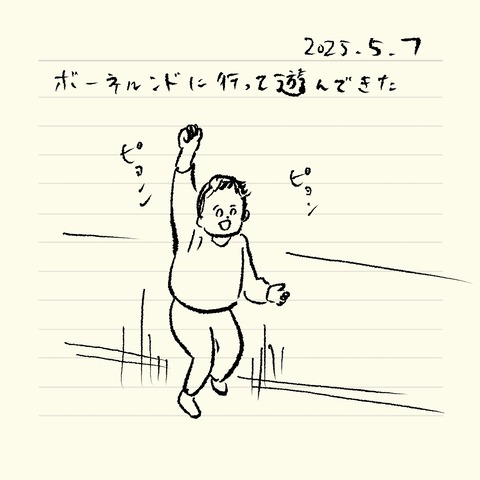 2025.5.7
ボーネルンドに行って遊んできた
ピョンン
ピョン